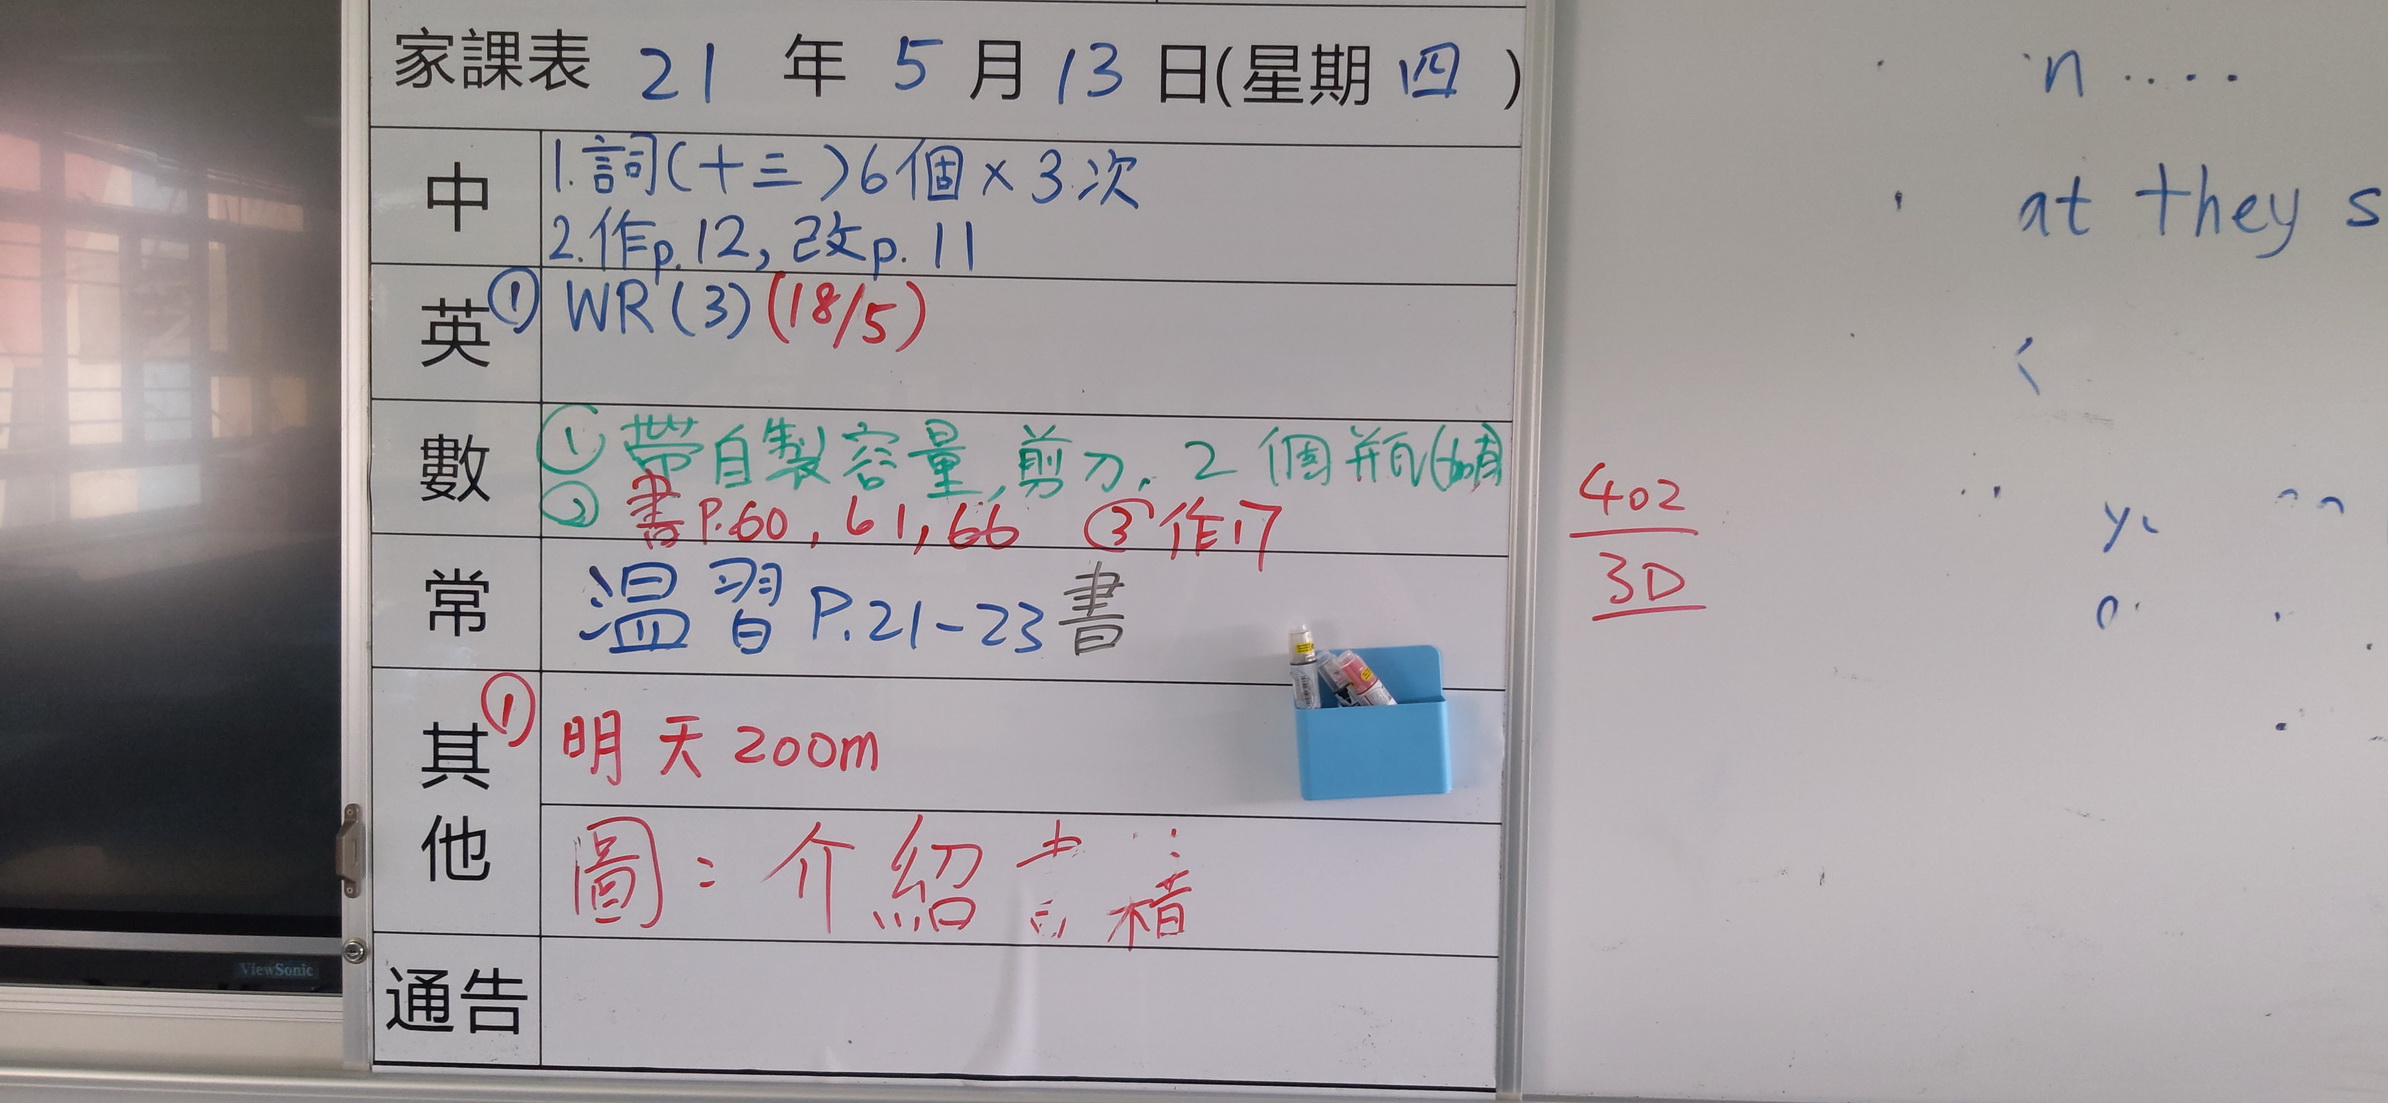 家課表 21 年 5 月 13 日(星期 四 )
中
1. 詞(十三)6個×3次
2. 作p.12, 改p.11
英
① WR (3) (18/5)
數
① 帶自製容量,剪刀, 2個瓶
② 書P.60, 61, 66 ③ 作17
常
溫習 P.21-23書
其他
① 明天200m
圖:介紹書籍
通告
402
3D
at they s
ViewSonic